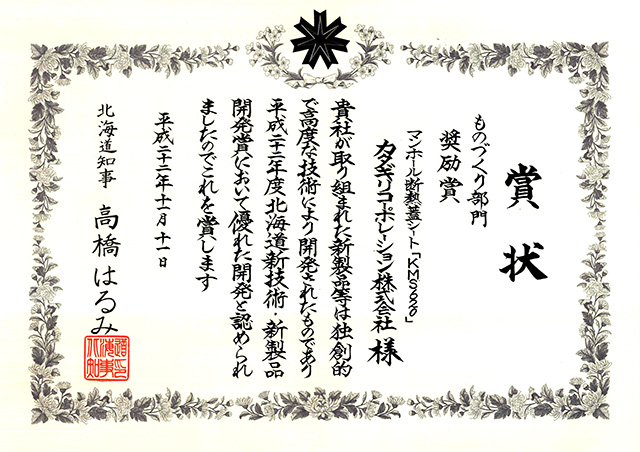 賞状
ものづくり部門
奨励賞
マンホール断熱蓋シート「KMS600」
カタギリコーポレーション株式会社 様
貴社が取り組まれた新製品等は独創的
で高度な技術により開発されたものであり
平成二十二年度北海道新技術・新製品
開発賞において優れた開発と認められ
ましたのでこれを賞します
平成二十二年十一月十一日
北海道知事 高橋はるみ